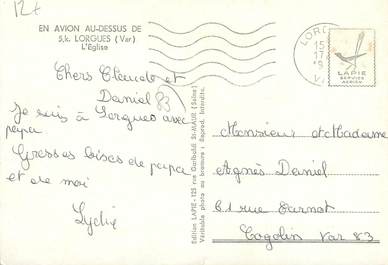 12t
EN AVION AU-DESSUS DE
5.k. LORGUES (Var)
L'Église
LORGUES
15
17
VAR
LAPIE
SERVICE
AERIEN
Chers Claude et
Daniel 83
Je suis à Lorgues avec
papa
Grosses bises de papa
et de moi
Lydie
Edition LAPIE - 125 rue Garibaldi St-MAUR (Seine)
Véritable photo au bromure : Reprod. Interdite.
Monsieur et Madame
Agnès Daniel
61 rue Carnot
Cogolin Var 83